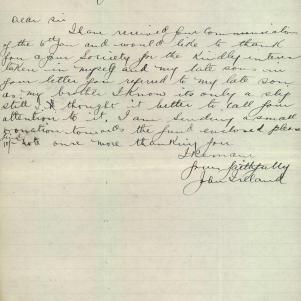 Dear Sir
I have received your communication
of the 6th Jan and would like to thank
you & your Society for the Kindly interest
taken in myself and my late sons in
your letter you referred to my late son
as my brother I know its only a slip
still I thought it better to call your
attention to it, I am sending a small
donation towards the fund enclosed please
note once more thanking you
I remain
Yours faithfully
John Ireland